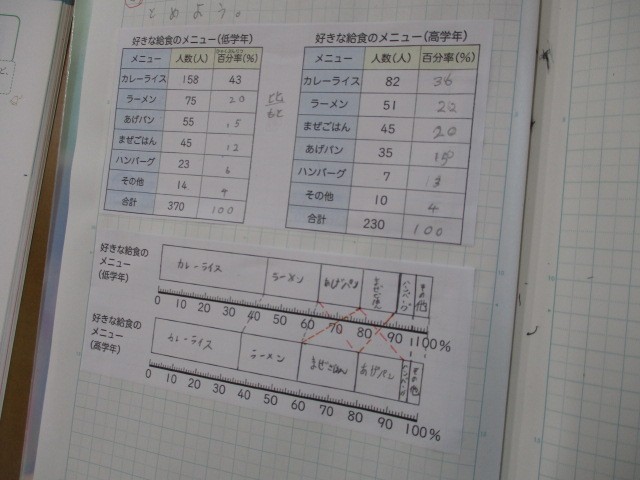 とめよう。
好きな給食のメニュー(低学年)
メニュー 人数(人) 百分率(%)
カレーライス 158 43
ラーメン 75 20
あげパン 55 15
まぜごはん 45 12
ハンバーグ 23 6
その他 14 4
合計 370 100
好きな給食のメニュー(高学年)
メニュー 人数(人) 百分率(%)
カレーライス 82 36
ラーメン 51 22
まぜごはん 45 20
あげパン 35 15
ハンバーグ 7
その他 10 4
合計 230 100
好きな給食の
メニュー
(低学年)
カレーライス ラーメン あげパン その他
0 10 20 30 40 50 60 70 80 90 100%
好きな給食の
メニュー
(高学年)
カレーライス ラーメン まぜごはん あげパン その他
0 10 20 30 40 50 60 70 80 90 100%